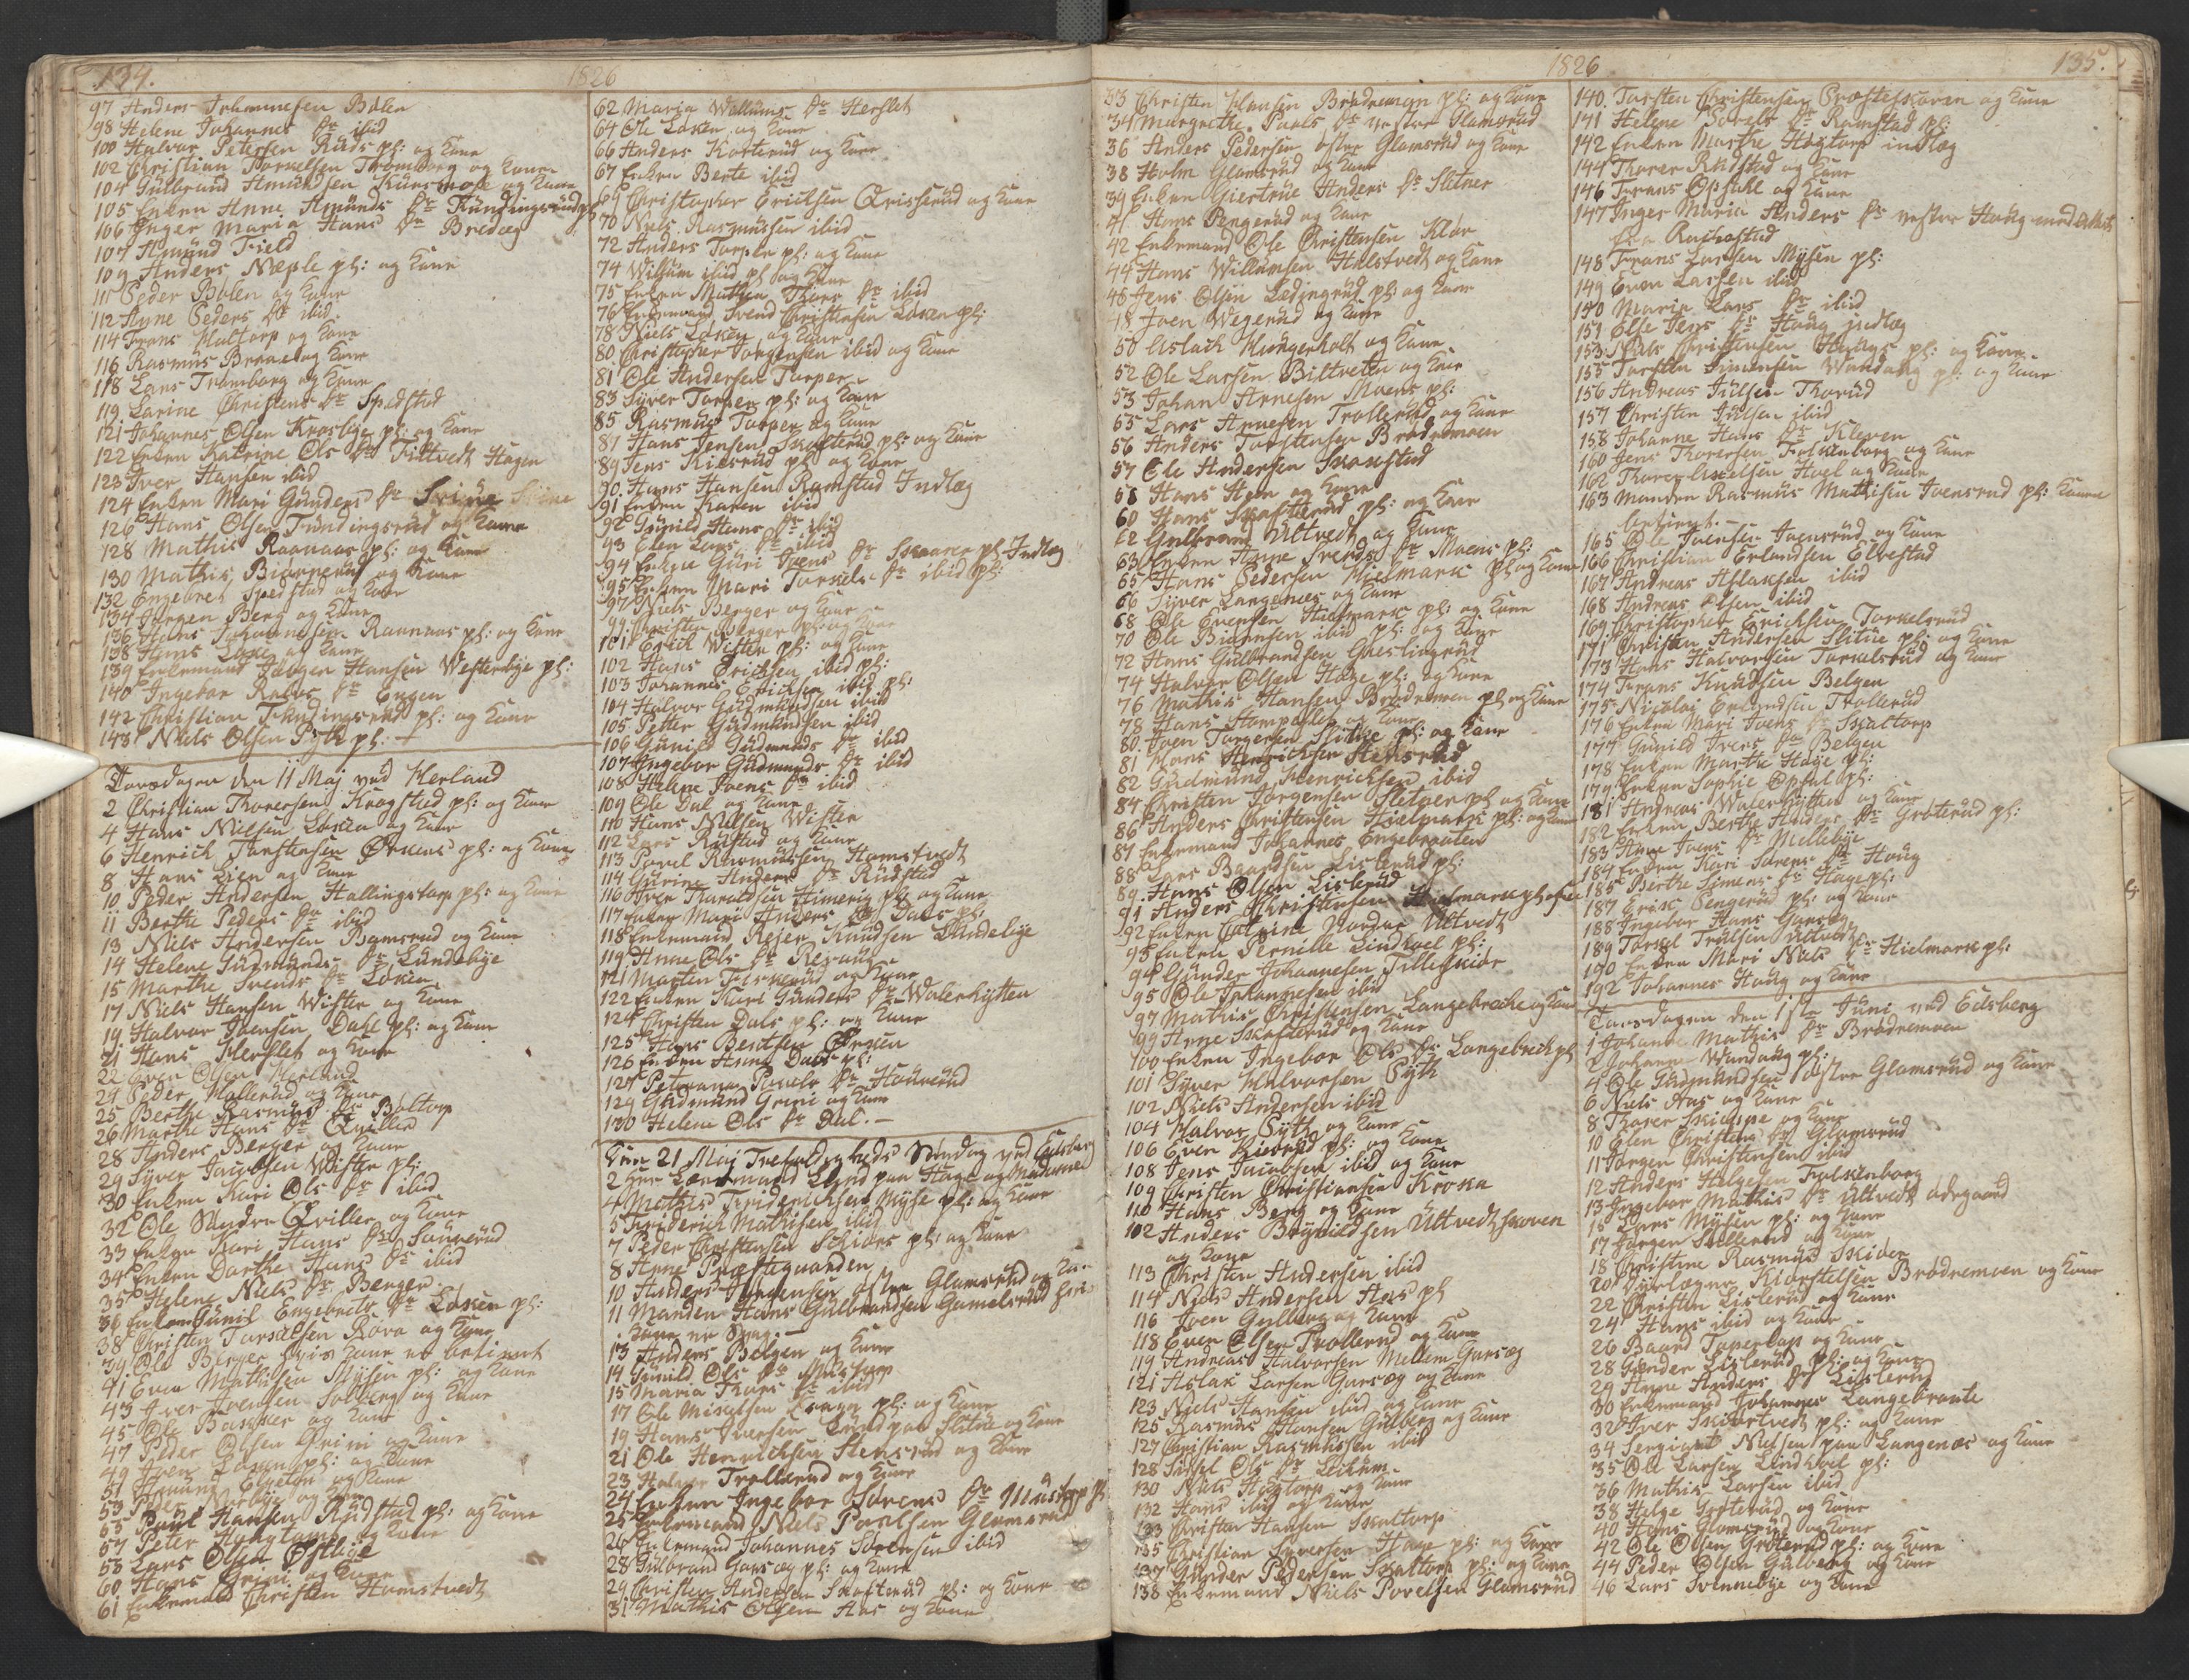 134.
1826
97 Anders Johannesen Bølen
98 Helene Johannes Dr ibid
100 Halvor Petersen Ruds pl: og Kone
102 Christian Torkelsen Tromborg og Kone
104 Gulbrand Amundsen Kursmose og Kone
105 Enken Anne Amunds Dr Kundingsrud pl
106 Inger Maria Hans Dr Bredeg
107 Amund Field
109 Anders Næple pl: og Kone
111 Peder Bølen og Kone
112 Anne Peders Dr ibid
114 Frans Haltorp og Kone
116 Rasmus Brenne og Kone
118 Lars Tromborg og Kone
119 Larine Christens Dr Spedstad
121 Johannes Olsen Krosbye pl: og Kone
122 Enken Katrine Ols Dr Tittvedt Hagen
123 Iver Hansen ibid
124 Enken Mari Gunders Dr
126 Hans Olsen Tundingsrud og Kone
128 Mathis Raanaas pl: og Kone
130 Mathis Biørnerud og Kone
132 Engebret Spedstad og Kone
134 Jørgen Berg og Kone
136 Hans Johannesen Raanaas pl: og Kone
138 Hans og Kone
139 Enkemand Jørgen Hansen Westerbye pl:
140 Ingebor Dr Engen
142 Christian Tundingsrud pl: og Kone
143 Niels Olsen Pytt pl: –
Torsdagen den 11 Maj ved Herland
2 Christian Thoresen Krogstad pl: og Kone
4 Hans Nilsen Løken og Kone
6 Henrich Torstensen Ørkens pl: og Kone
8 Hans Lien og Kone
10 Peder Andersen Hallingstorp pl: og Kone
11 Berthe Peders Dr ibid
13 Niels Andersen Bamsrud og Kone
14 Helene Gudmunds Dr Lundebye
15 Marthe Svends Dr Løken
17 Niels Hansen Wister og Kone
19 Halvor Joensen Dahl pl: og Kone
21 Hans Herslet og Kone
22 Even Olsen Herland
24 Peder Møllerud og Kone
25 Berthe Rasmus Dr Baltorp
26 Marthe Hans Dr Qviller
28 Anders Berger og Kone
29 Syver Jacobsen Wister pl:
30 Enken Kari Ols Dr ibid
32 Ole Søndre Qviller og Kone
33 Enken Kari Hans Dr
34 Enken Dorthe Hans Dr ibid
35 Helene Niels Dr Berger
36 Enken Gunil Engebrets Dr Løken pl:
38 Christen Torkelsen Røra og Kone
39 Ole Berger hvis Kone er betient
41 Even Mathisen Mysen pl: og Kone
43 Iver Joensen Solberg og Kone
45 Ole Barkker og Kone
47 Peder Olsen Grini og Kone
49 Iver Løken pl: og Kone
51 Amund og Kone
53 Peder og Kone
55 Poul Hansen Rudstad pl: og Kone
57 Peter og Kone
58 Lars Olsen Østbye
60 Hans Grini og Kone
61 Enkemand Christen Hamstvedt
62 Maria Willums Dr Herslet
64 Ole Løken og Kone
66 Anders Korterud og Kone
67 Enken Berte ibid
69 Christopher Ericksen Qvisserud og Kone
70 Niels Rasmussen ibid
72 Anders Torper pl: og Kone
74 Willum ibid pl og Kone
75 Enken Mathea Thors Dr ibid
76 Enkemand Svend Christensen Løken pl:
78 Niels Løken og Kone
80 Christopher Jørgensen ibid og Kone
81 Ole Andersen Torper
83 Syver Torper pl: og Kone
85 Rasmus Torper og Kone
87 Hans Jensen Skofterud pl: og Kone
89 Jens Kilsrud pl og Kone
90. Hans Hansen Ramstad Indlæg
91 Enken Karen ibid
92 Gunild Hans Dr ibid
93 Elen Lars Dr ibid
94 Enken Guri Joens Dr Skaarer pl. Indlæg
95 Enken Mari Torkels Dr ibid pl:
97 Niels Berger og Kone
99 Christen Berger pl: og Kone
101 Erich Wister pl: og Kone
102 Hans Ericksen ibid pl:
103 Johannes Ericksen ibid pl:
104 Halvor Gudmundsen ibid
105 Petter Gudmundsen ibid
106 Gunild Gudmunds Dr ibid
107 Ingebor Gudmunds Dr ibid
108 Helene Joens Dr ibid
109 Ole Dal og Kone
110 Hans Nielsen Wister
112 Lars Rudstad og Kone
113 Povel Rasmussen Hamstvedt
114 Gurine Anders Dr Rudstad
116 Iver Haraldsen Himerig pl: og Kone
117 Enken Mari Anders Dr Dals pl:
118 Enkemand Rejer Knudsen Lundebye
119 Anne Ols Dr
121 Morten og Kone
122 Enken Kari Gunders Dr Walerhytten
124 Christen Dals pl: og Kone
125 Hans Bentsen Ørken
126 Enken Anne Dals pl:
127 Petronne Povels Dr
129 Gudmund Grini og Kone
130 Helene Ols Dr Dal. –
Den 21 Maj Trefoldigheds Søndag ved Eidsberg
2 Herr Lensmand Lund paa Hage og Madamen
4 Mathis Friderichsen Mysen pl: og Kone
5 Friderich Mathisen ibid
7 Peder Christensen Schiørs pl: og Kone
8 Anne Præstegaarden
10 Anders Jørgensen østre Glamsrud og Kone
11 Manden Hans Gulbrandsen Gamelsrud hvis
Kone er Svag. –
13 Anders Belgen og Kone
14 Gunild Ols Dr Miestorp
15 Maria Thors Dr ibid
17 Ole Mikelsen pl: og Kone
19 Hans Iversen Lund paa Slitne og Kone
21 Ole Henrichsen Stensrud og Kone
23 Halvor Trollerud og Kone
24 Enken Ingebor Sørens Dr Miestorp pl
25 Enkemand Niels Povelsen Glomsrud
26 Enkemand Johannes Sørensen ibid
28 Gulbrand Garseg pl: og Kone
29 Christen Andersen Skofterud pl: og Kone
31 Mathis Olsen Aas og Kone
1826
135.
33 Christen Hansen Brødremoen pl: og Kone
34 Margrethe Povels Dr vestre Glamsrud
36 Anders Pedersen østre Glamsrud og Kone
38 Holm Glomsrud og Kone
39 Enken Giertrue Anders Dr Slitner
41 Hans Pengerud og Kone
42 Enkemand Ole Christensen Kløv
44 Hans Willumsen Hulstvedt og Kone
46 Jens Olsen Ledingrud pl: og Kone
48 Joen Wegerud og Kone
50 Aslach Hungerholt og Kone
52 Ole Larsen Biltveten og Kone
53 Johan Arnesen Moens pl:
55 Lars Arnesen Trollerud og Kone
56 Anders Torstensen Brødremoen
57 Ole Andersen Skakstad
58 Hans Hem og Kone
60 Hans Skofterud pl: og Kone
62 Gulbrand Ultvedt og Kone
63 Enken Anne Svends Dr Moens pl:
65 Hans Pedersen Hielmark pl og Kone
66 Syver Langenes og Kone
68 Ole Evensen Hielmark pl: og Kone
70 Ole Biørnsen ibid pl: og Kone
72 Hans Gulbrandsen Gæslingrud
74 Halvor Olsen Hage pl: og Kone
76 Mathis Hansen Brødremoen pl og Kone
78 Hans Stomperud og Kone
80. Joen Torgersen Slitue pl: og Kone
81 Hans Henrichsen Stensrud
82 Gudmund Henrichsen ibid
84 Christen Jørgensen Slitner pl og Kone
86 Anders Christensen Hielmark pl: og Kone
87 Enkemand Johannes Engebraaten
88 Lars Baardsen Lislerud pl:
89. Hans Olsen Lislerud
91 Anders Christensen Hielmark pl
92 Enken Cathrine Ultvedt
93 Enken Pernille Lindhoel pl:
94 Gunder Johannesen Tillefskiør
95 Ole Johannesen ibid
97 Mathis Christensen Langebreche og Kone
99 Arne Skofterud og Kone
100 Enken Ingebor Ols Dr Langebrech pl
101 Syver Halvorsen Pytt
102 Niels Andersen ibid
104 Halvor Pytt og Kone
106 Even Kiosrud pl: og Kone
108 Jens Jacobsen ibid og Kone
109 Christen Christiansen Kroken
110 Hans Berg og Kone
102 Anders Brynildsen Ultvedt skoven
og Kone
113 Christen Andersen ibid
114 Niels Andersen Aas pl
116 Joen Gulberg og Kone
118 Even Olsen Trollerud og Kone
119 Andreas Halvorsen Mellem Garseg
121 Aslak Larsen Garseg og Kone
123 Niels Hansen ibid og Kone
125 Rasmus Hansen Gulberg og Kone
127 Christian Rasmussen ibid
128 Sissel Ols Dr Leikum
130 Niels Hægtorp og Kone
132 Hans ibid og Kone
133 Christen Hansen Skaltorp
135 Christian Syversen Hage pl: og Kone
137 Gunder Pedersen Skaltorp pl: og Kone
138 Enkemand Niels Povelsen Glamsrud
140. Torsten Christensen Præsteskoven og Kone
141 Helene Povels Dr Ramstad pl:
142 Enken Marthe Hægtorp indlæg
144 Thorer Rudstad og Kone
146 Frans Opsahl og Kone
147 Inger Maria Anders Dr vestre Haug med Attest
fra Rakkestad
148 Frans Larsen Mysen pl:
149 Even Larsen ibid
150 Maria Lars Dr ibid
151 Else Jens Dr Haug indlæg
153 Niels Christensen Haugs pl: og Kone
155 Torsten Simensen Wandaug pl: og Kone
156 Andreas Julsen Thorud
157 Christen Julsen ibid
158 Johanne Hans Dr Kleven
160 Jens Thoresen Falkenborg og Kone
162 Thorer Axelsen Hoel og Kone
163 Manden Rasmus Mathisen Joensrud pl: Konen
betient. –
165 Ole Joensen Joensrud og Kone
166 Christian Erlandsen Elvestad
167 Andreas Aslaksen ibid
168 Andreas Olsen ibid
169 Christopher Ericksen Torkelsrud
171 Christen Andersen Slitue pl: og Kone
173 Hans Halvorsen Torkelsrud og Kone
174 Frans Knudsen Belgen
175 Nicolai Erlandsen Trollerud
176 Enken Mari Joens Dr Skaltorp
177 Gunild Ivers Dr Belgen
178 Enken Marthe Haie pl:
179 Enken Sophie Opsal pl:
181 Andreas Walerhytten og Kone
182 Enken Berthe Anders Dr Grøterud pl:
183 Anne Joens Dr Mellebye
184 Enken Kari Sørens Dr Haug
185 Berthe Simens Dr Hage pl:
187 Erik Pengerud pl: og Kone
188 Ingebor Hans Garseg
189 Torkel Trulsen Ultvedt
190 Enken Mari Niels Dr Hielmark pl:
192 Johannes Haug og Kone
Torsdagen den 1ste Juni ved Eidsberg
1 Johanne Mathis Dr Brødremoen
2 Johanne Wandaug pl:
4 Ole Gudmundsen østre Glamsrud og Kone
6 Niels Aas og Kone
8 Thorer og Kone
10 Elen Christens Dr Glamsrud
11 Jørgen Christensen ibid
12 Anders Helgesen Falkenborg
13 Ingebor Mathis Dr Ultvedt ødegaard
15 Lars Mysen pl: og Kone
17 Jørgen Stellerud og Kone
18 Christine Rasmus Skiør
20 Dyrlægner Kiærstelsen Brødremoen og Kone
22 Christen Lislerud og Kone
24 Hans ibid og Kone
26 Baard og Kone
28 Gunder Lislerud pl: og Kone
29 Anne Anders Dr Lislerud
30 Enkemand Johannes Langebraate
32 Iver Skiortvedt pl: og Kone
34 Sergiant Nielsen paa Langenæs og Kone
35 Ole Larsen Lindhoel pl:
36 Mathis Larsen ibid
38 Helge Grøterud og Kone
40 Hans Glomsrud og Kone
42 Ole Olsen Grøterud pl: og Kone
44 Peder Olsen Gulberg og Kone
46 Lars Svennebye og Kone